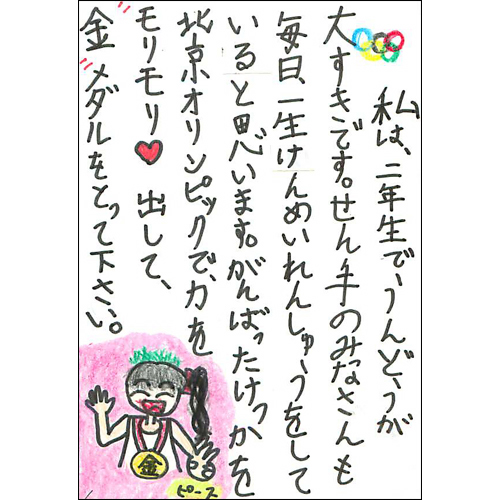 私は、二年生で、うんどうが
大すきです。せん手のみなさんも
毎日、一生けんめいれんしゅうをして
いると思います。がんばったけっかを
北京オリンピックで、力を
モリモリ♥出して、
金メダルをとって下さい。
金
ピース